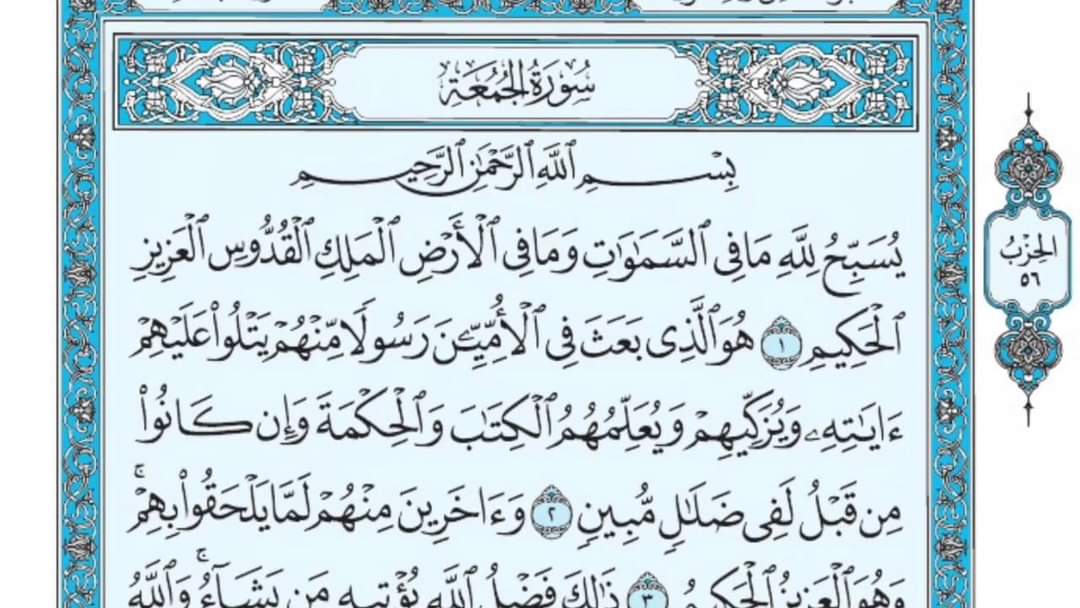 سُورَةُ الجُمُعَةِ
بِسْمِ ٱللَّهِ ٱلرَّحْمَٰنِ ٱلرَّحِيمِ
يُسَبِّحُ لِلَّهِ مَا فِى ٱلسَّمَٰوَٰتِ وَمَا فِى ٱلْأَرْضِ ٱلْمَلِكِ ٱلْقُدُّوسِ ٱلْعَزِيزِ
ٱلْحَكِيمِ ١ هُوَ ٱلَّذِى بَعَثَ فِى ٱلْأُمِّيِّـۧنَ رَسُولًا مِّنْهُمْ يَتْلُوا۟ عَلَيْهِمْ
ءَايَٰتِهِۦ وَيُزَكِّيهِمْ وَيُعَلِّمُهُمُ ٱلْكِتَٰبَ وَٱلْحِكْمَةَ وَإِن كَانُوا۟
مِن قَبْلُ لَفِى ضَلَٰلٍ مُّبِينٍ ٢ وَءَاخَرِينَ مِنْهُمْ لَمَّا يَلْحَقُوا۟ بِهِمْ ۚ
وَهُوَ ٱلْعَزِيزُ ٱلْحَكِيمُ ٣ ذَٰلِكَ فَضْلُ ٱللَّهِ يُؤْتِيهِ مَن يَشَآءُ ۚ وَٱللَّهُ
الحِزْبُ
٥٦